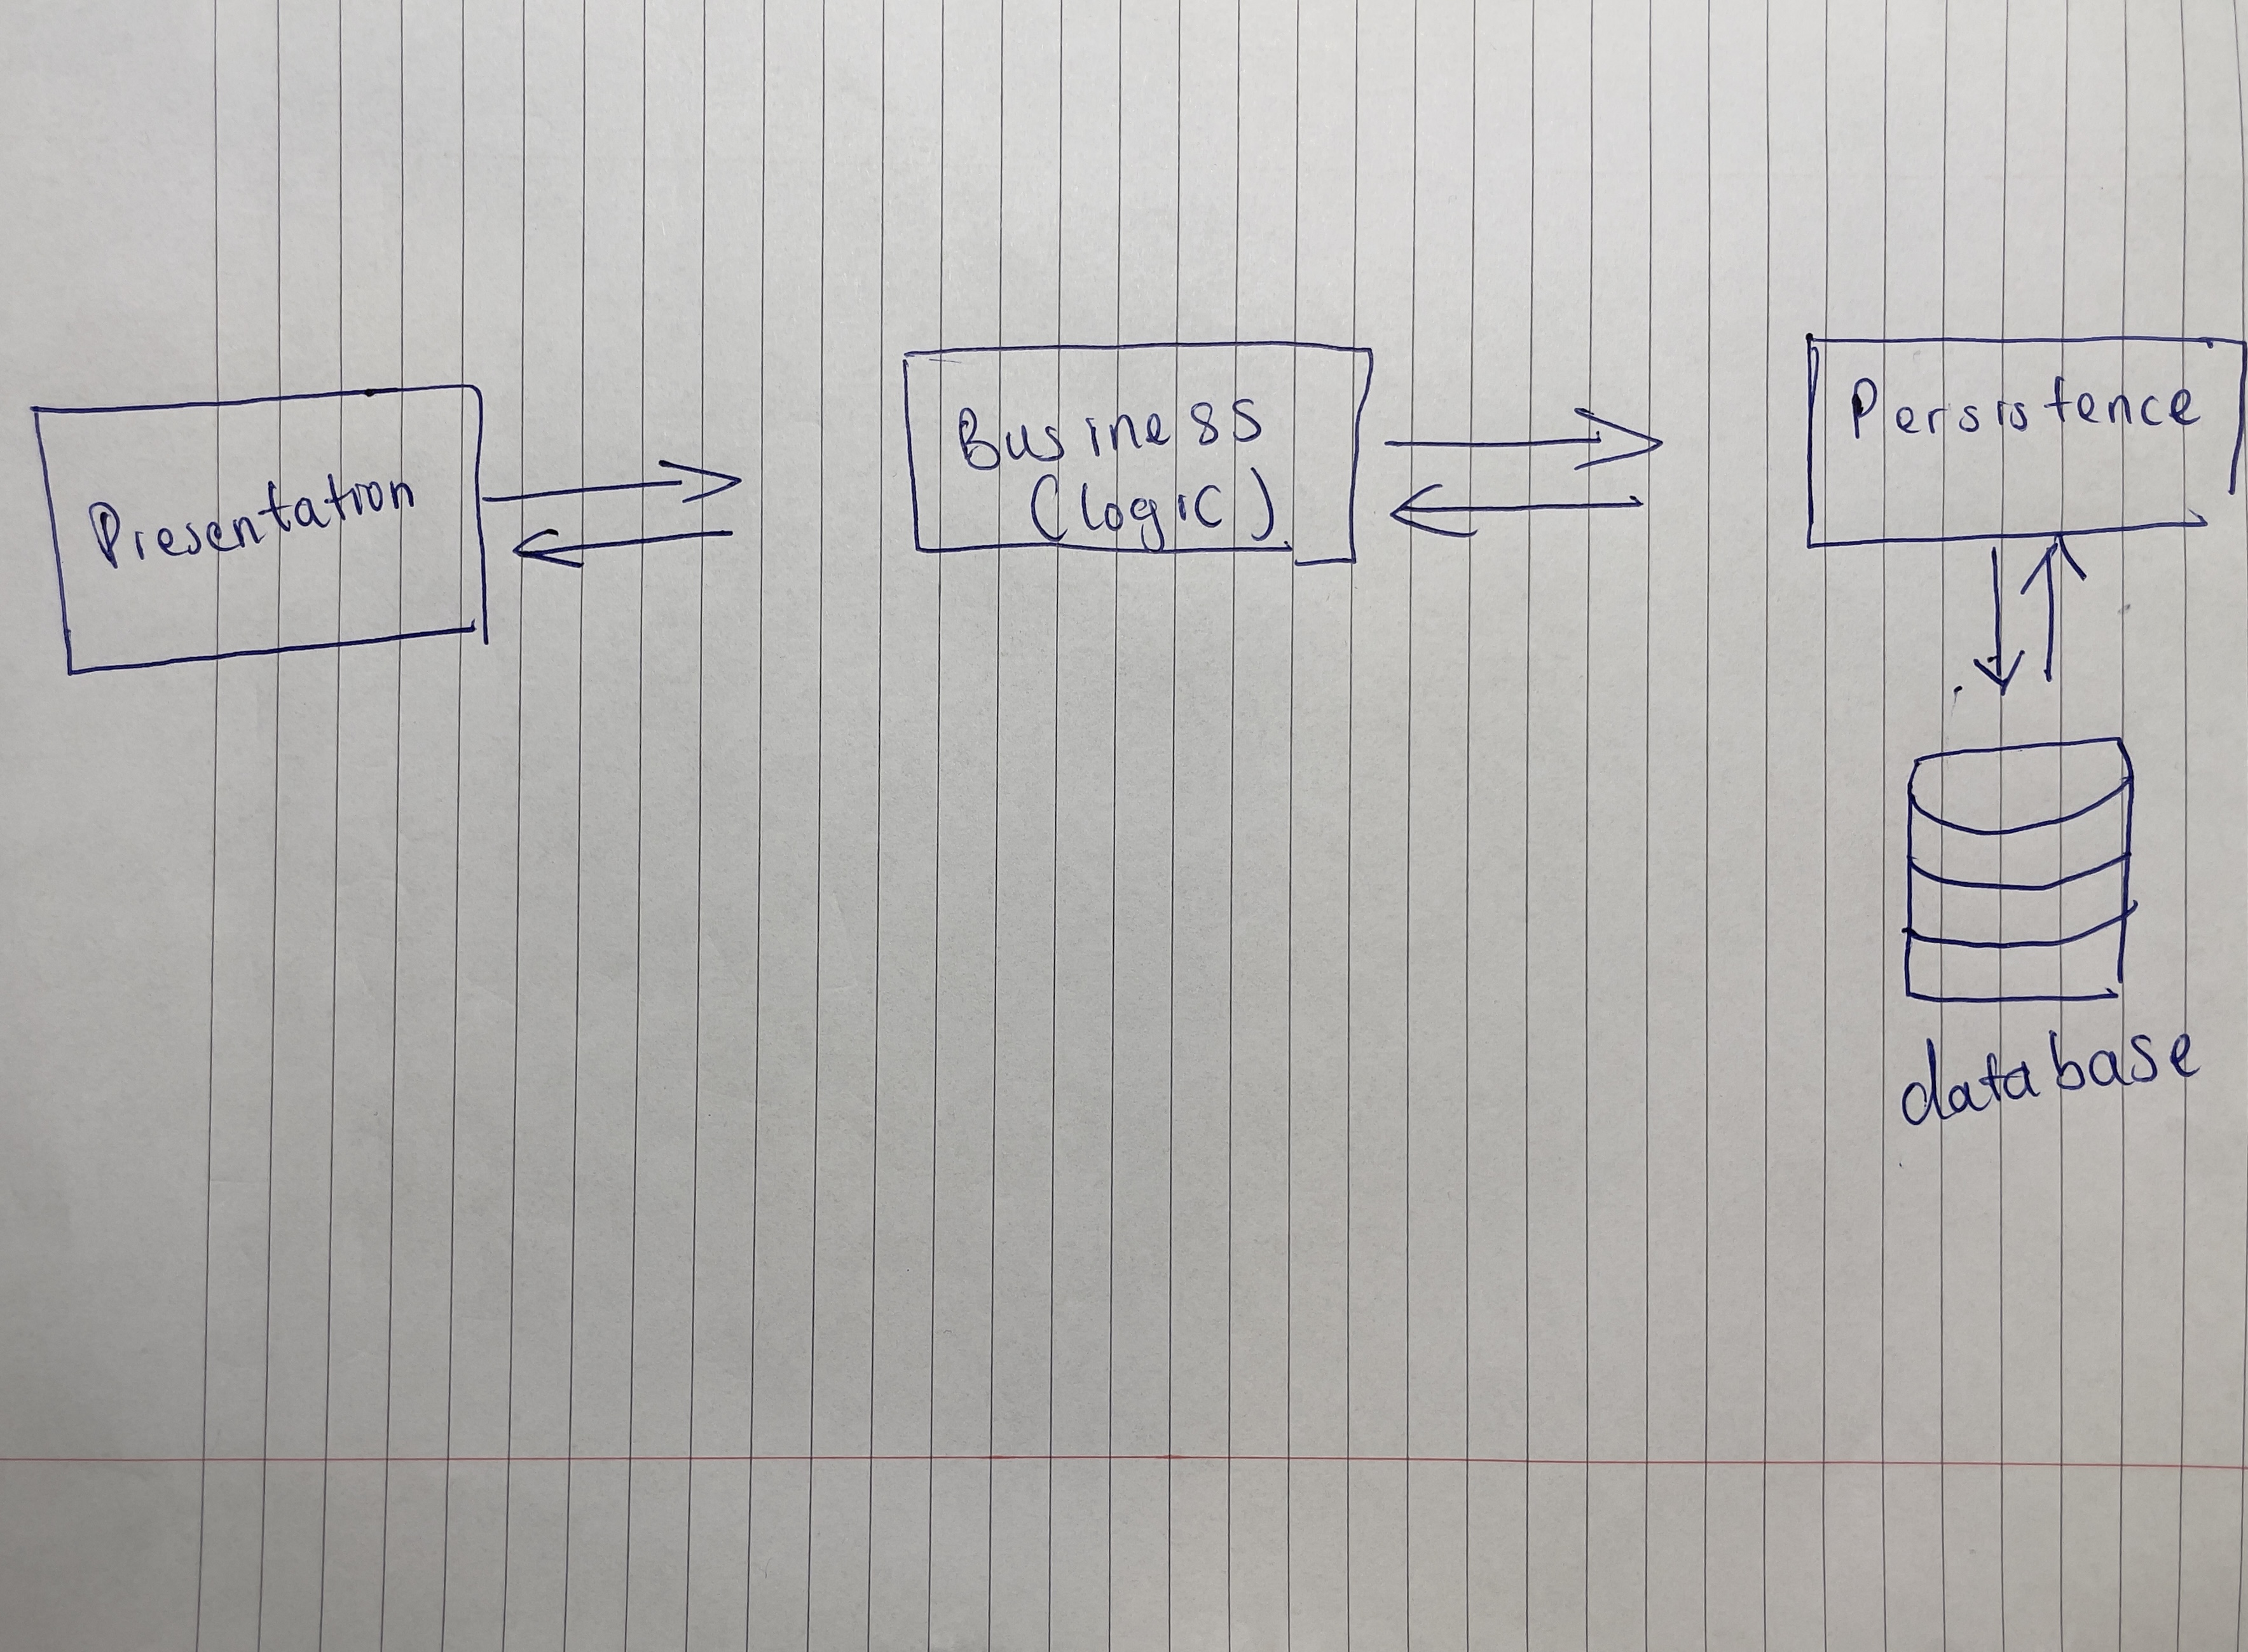 Presentation
Business
(logic)
Persistence
database